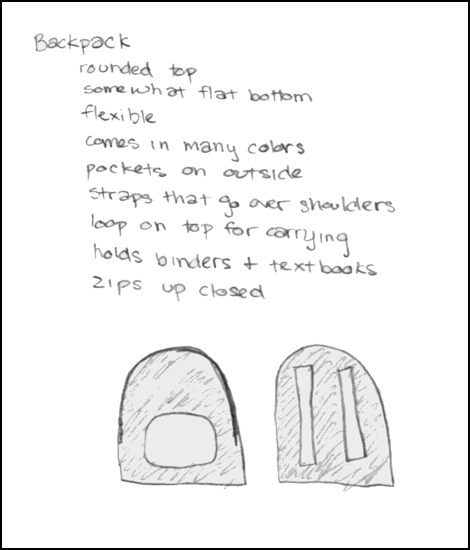 Backpack
rounded top
somewhat flat bottom
flexible
comes in many colors
pockets on outside
straps that go over shoulders
loop on top for carrying
holds binders + textbooks
zips up closed